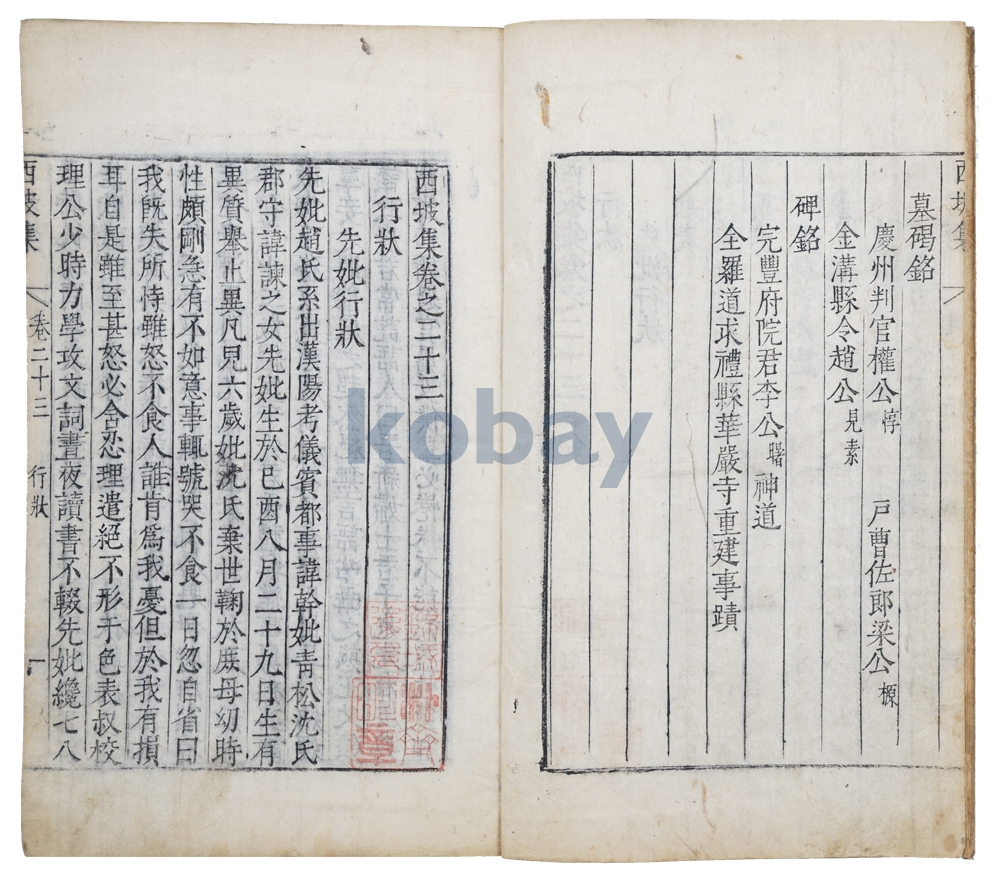 西坡集
墓碣銘
慶州判官權公惇 戶曹佐郎梁公榞
金溝縣令趙公見素
碑銘
完豐府院君李公曙神道
全羅道求禮縣華嚴寺重建事蹟
西坡集卷之二十三
行狀
先妣行狀
先妣趙氏系出漢陽考儀賓都事諱幹妣靑松沈氏
郡守諱諫之女先妣生於己酉八月二十九日生有
異質擧止異凡兒六歲妣沈氏棄世鞠於庶母幼時
性頗剛急有不如意事輒號哭不食一日忽自省曰
我旣失所恃雖怒不食人誰肯爲我憂但於我有損
耳自是雖至甚怒必含忍理遣絕不形于色表叔校
理公少時力學攻文詞晝夜讀書不輟先妣纔七八
西坡集 卷二十三 行狀 一
kobay